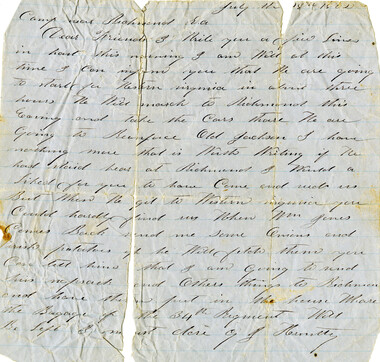 July the 18
Camp near Richmond Va
Dear Friends I Write you a few Lines
in hast this morning I am Well at this
time I can inform you that We are going
to start for Western virginia in about three
hours We Will march to Richmond this
Evening and take the Cars Whare We are
Going to Reinforce Old Jackson I have
nothing more that is Worth Writing if We
had staid hear at Richmond I Would a
liked for you to have Come and seeb us
But When We get to Western virginia you
Could hardly find us When Wm Jones
Comes Back send me Some Onions and
irish potatoes if he Will fetch them you
Can tell him that I am going to send
him napsack and Others things to Richmon
and have them put in the house Whare
the Bagage of the 34th Regiment Will
Be left I must